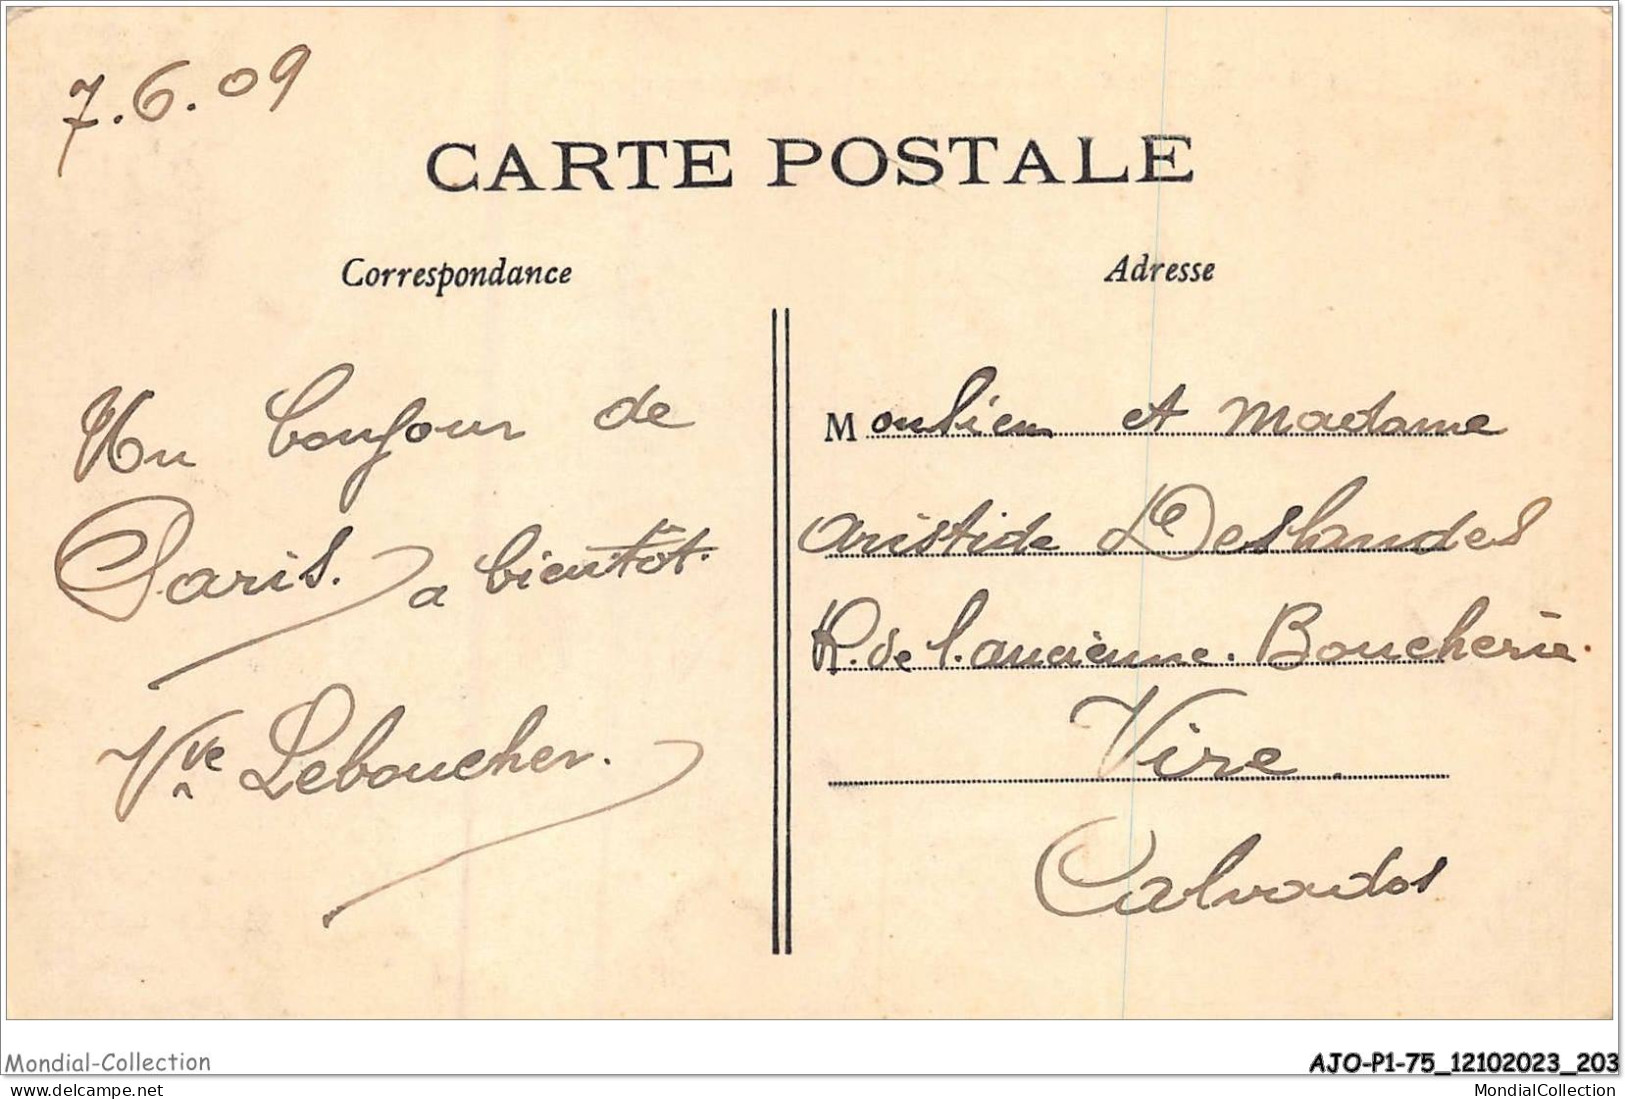 7.6.09
CARTE POSTALE
Correspondance
Adresse
Un bonjour de
Paris. a bientôt.
Vve Leboucher.
Monsieur et Madame
Aristide Deslandes
R. de l'ancienne. Boucherie.
Vire.
Calvados
Mondial-Collection
AJO-P1-75_12102023_203
You're at the home of delcampe.net
MondialCollection